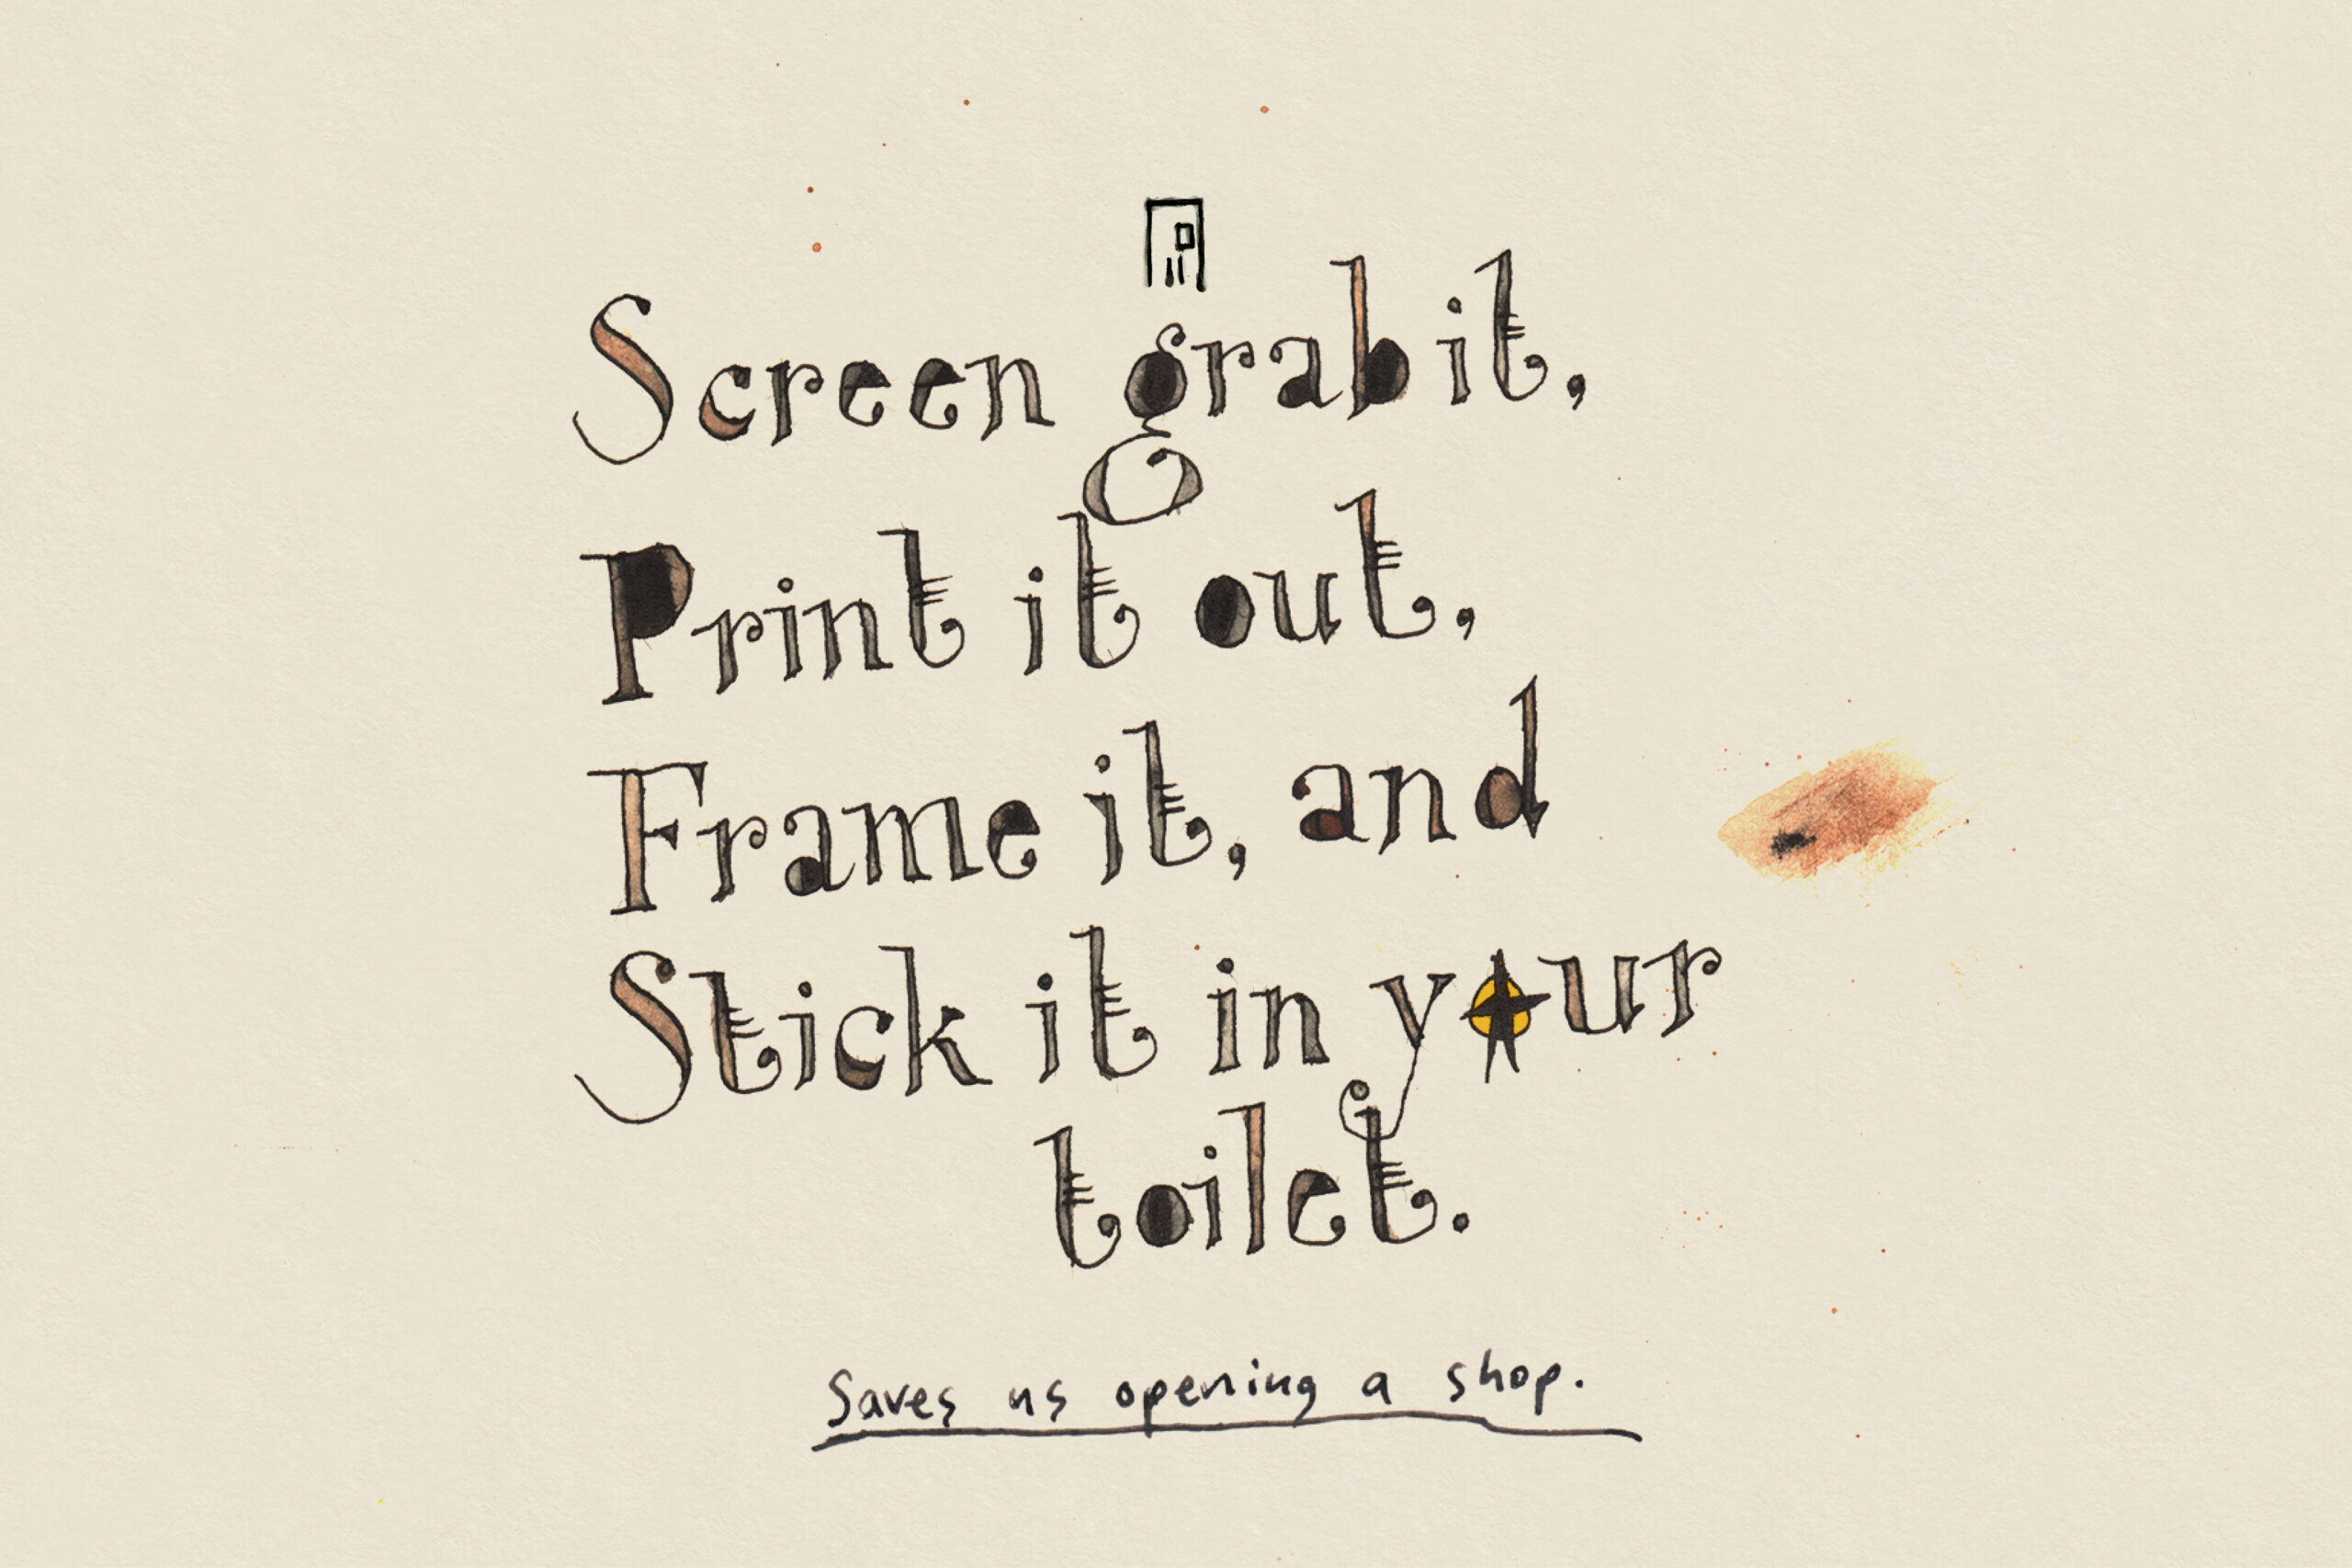 Screen grab it,
Print it out,
Frame it, and
Stick it in your
toilet.
Saves us opening a shop.